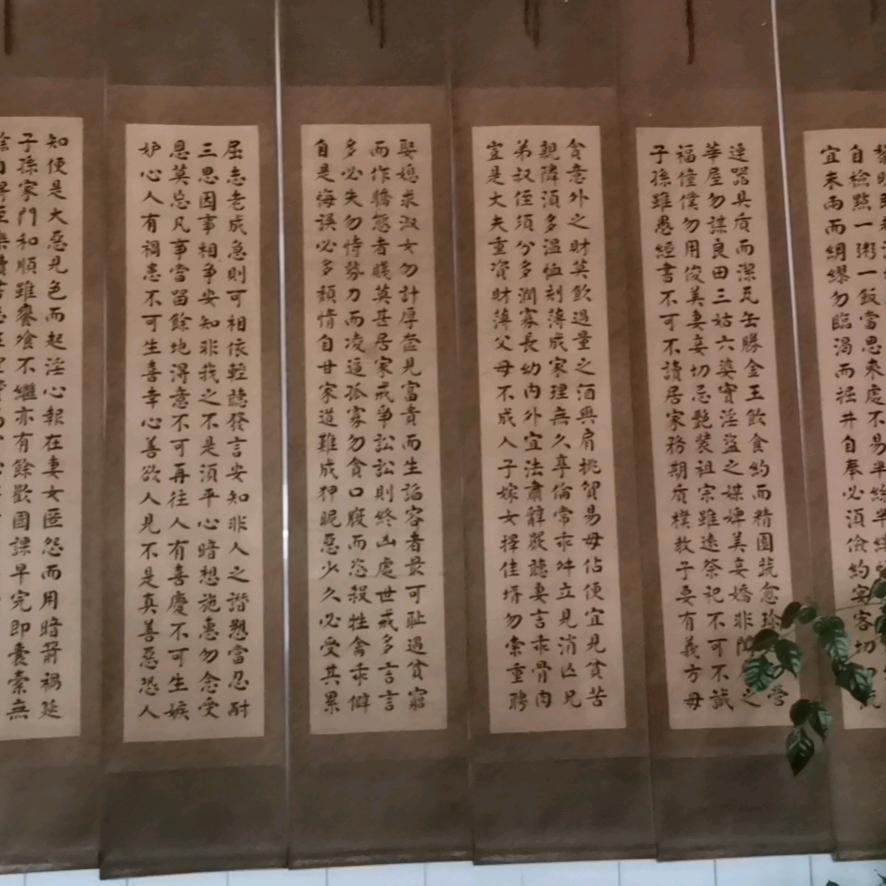 自檢點一粥一飯當思來處不易半絲半
宜未雨而綢繆勿臨渴而掘井自奉必須儉約宴客切勿流
連器具質而潔瓦缶勝金玉飲食約而精園蔬愈珍營
華屋勿謀良田三姑六婆實淫盜之媒婢美妾嬌非閨房之
福僮僕勿用俊美妻妾切忌艷裝祖宗雖遠祭祀不可不誠
子孫雖愚經書不可不讀居家務期質樸教子要有義方毋
貪意外之財莫飲過量之酒與肩挑貿易毋佔便宜見貧苦
親隣須多溫恤刻薄成家理無久享倫常乖舛立見消亡兄
弟叔侄須分多潤寡長幼內外宜法肅辭嚴聽妻言乖骨肉
豈是丈夫重資財薄父母不成人子嫁女擇佳壻勿索重聘
娶媳求淑女勿計厚奩見富貴而生諂容者最可恥遇貧窮
而作驕態者賤莫甚居家戒爭訟訟則終凶處世戒多言言
多必失勿恃勢力而凌逼孤寡勿貪口腹而恣殺牲禽乖僻
自是悔誤必多頹惰自甘家道難成狎昵惡少久必受其累
屈志老成急則可相依輕聽發言安知非人之譖愬當忍耐
三思因事相爭安知非我之不是須平心暗想施惠勿念受
恩莫忘凡事當留餘地得意不可再往人有喜慶不可生嫉
妒心人有禍患不可生喜幸心善欲人見不是真善惡恐人
知便是大惡見色而起淫心報在妻女匿怨而用暗箭禍延
子孫家門和順雖饔飧不繼亦有餘歡國課早完即囊橐無
餘自得至樂讀書志在聖賢